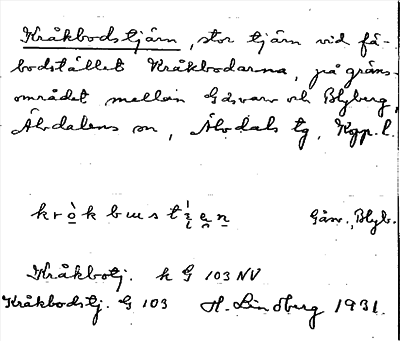 Kråkbodstjärn, stor tjärn vid fä-
bodstället Kråkbodarna, på gräns-
området mellan Gåsvarv och Blyberg,
Älvdalens sn, Älvdals tg, Kopp. l.
Blyb.
Kråkbotj. k G 103 NV
Kråkbodstj. G 103 H. Lindberg 1931.